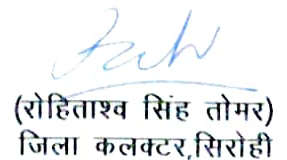 (रोहिताश्व सिंह तोमर)
जिला कलक्टर,सिरोही